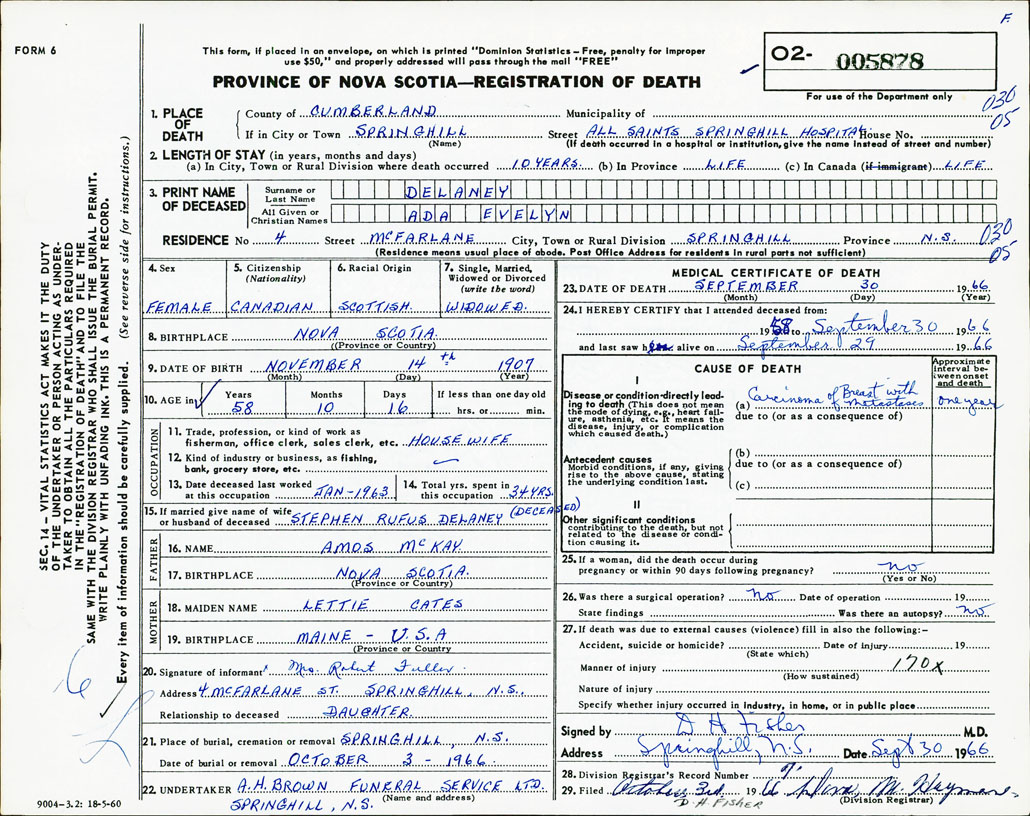 F.
FORM 6
This form, if placed in an envelope, on which is printed "Dominion Statistics – Free, penalty for improper
use $50," and properly addressed will pass through the mail "FREE"
PROVINCE OF NOVA SCOTIA—REGISTRATION OF DEATH
02- 005878
For use of the Department only
030
05
1. PLACE OF DEATH
County of CUMBERLAND Municipality of
If in City or Town SPRINGHILL Street ALL SAINTS SPRINGHILL HOSPITAL House No.
(Name) (If death occurred in a hospital or institution, give the name instead of street and number)
2. LENGTH OF STAY (in years, months and days)
(a) In City, Town or Rural Division where death occurred 10 YEARS. (b) In Province LIFE (c) In Canada (if immigrant) LIFE
3. PRINT NAME OF DECEASED
Surname or Last Name DELANEY
All Given or Christian Names ADA EVELYN
RESIDENCE No 4 Street McFARLANE City, Town or Rural Division SPRINGHILL Province N.S.
030
05
(Residence means usual place of abode. Post Office Address for residents in rural parts not sufficient)
4. Sex FEMALE
5. Citizenship (Nationality) CANADIAN
6. Racial Origin SCOTTISH.
7. Single, Married, Widowed or Divorced (write the word) WIDOWED.
8. BIRTHPLACE NOVA SCOTIA.
(Province or Country)
9. DATE OF BIRTH NOVEMBER 14th 1907
(Month) (Day) (Year)
10. AGE in Years 58 Months 10 Days 16 If less than one day old hrs. or min.
OCCUPATION
11. Trade, profession, or kind of work as
fisherman, office clerk, sales clerk, etc. HOUSE WIFE
12. Kind of industry or business, as fishing,
bank, grocery store, etc.
13. Date deceased last worked
at this occupation JAN-1963
14. Total yrs. spent in
this occupation 34 YRS.
15. If married give name of wife
or husband of deceased STEPHEN RUFUS DELANEY (DECEASED)
FATHER
16. NAME AMOS McKAY
17. BIRTHPLACE NOVA SCOTIA.
(Province or Country)
MOTHER
18. MAIDEN NAME LETTIE CATES
19. BIRTHPLACE MAINE - U.S.A
(Province or Country)
20. Signature of informant Mrs. Robert Fuller.
Address 4 McFARLANE ST. SPRINGHILL, N.S.
Relationship to deceased DAUGHTER.
21. Place of burial, cremation or removal SPRINGHILL, N.S.
Date of burial or removal OCTOBER 3 - 1966.
22. UNDERTAKER A.H. BROWN FUNERAL SERVICE LTD.
(Name and address)
SPRINGHILL, N.S.
9004-3.2: 18-5-60
MEDICAL CERTIFICATE OF DEATH
23. DATE OF DEATH SEPTEMBER 30 1966
(Month) (Day) (Year)
24. I HEREBY CERTIFY that I attended deceased from:
1958 to September 30 1966
and last saw her alive on September 29 1966
CAUSE OF DEATH
Approximate interval between onset and death
I
Disease or condition directly leading to death (This does not mean the mode of dying, e.g., heart failure, asthenia, etc. It means the disease, injury, or complication which caused death.)
(a) Carcinoma of Breast with metastases one year
due to (or as a consequence of)
Antecedent causes
Morbid conditions, if any, giving rise to the above cause, stating the underlying condition last.
(b)
due to (or as a consequence of)
(c)
II
Other significant conditions
contributing to the death, but not related to the disease or condition causing it.
25. If a woman, did the death occur during
pregnancy or within 90 days following pregnancy? no
(Yes or No)
26. Was there a surgical operation? no Date of operation 19
State findings Was there an autopsy? no
27. If death was due to external causes (violence) fill in also the following:–
Accident, suicide or homicide? Date of injury 19
(State which)
Manner of injury 170x
(How sustained)
Nature of injury
Specify whether injury occurred in Industry, in home, or in public place
Signed by D H Fisher M.D.
Address Springhill, N.S. Date Sept 30 1966
28. Division Registrar's Record Number
29. Filed October 3rd 1966
(Division Registrar)
D. H. FISHER
SEC. 14 – VITAL STATISTICS ACT MAKES IT THE DUTY
OF THE UNDERTAKER OR PERSON ACTING AS UNDER-
TAKER TO OBTAIN ALL THE PARTICULARS REQUIRED
IN THE "REGISTRATION OF DEATH" AND TO FILE THE
SAME WITH THE DIVISION REGISTRAR WHO SHALL ISSUE THE BURIAL PERMIT.
WRITE PLAINLY WITH UNFADING INK. THIS IS A PERMANENT RECORD.
Every item of information should be carefully supplied. (See reverse side for instructions.)